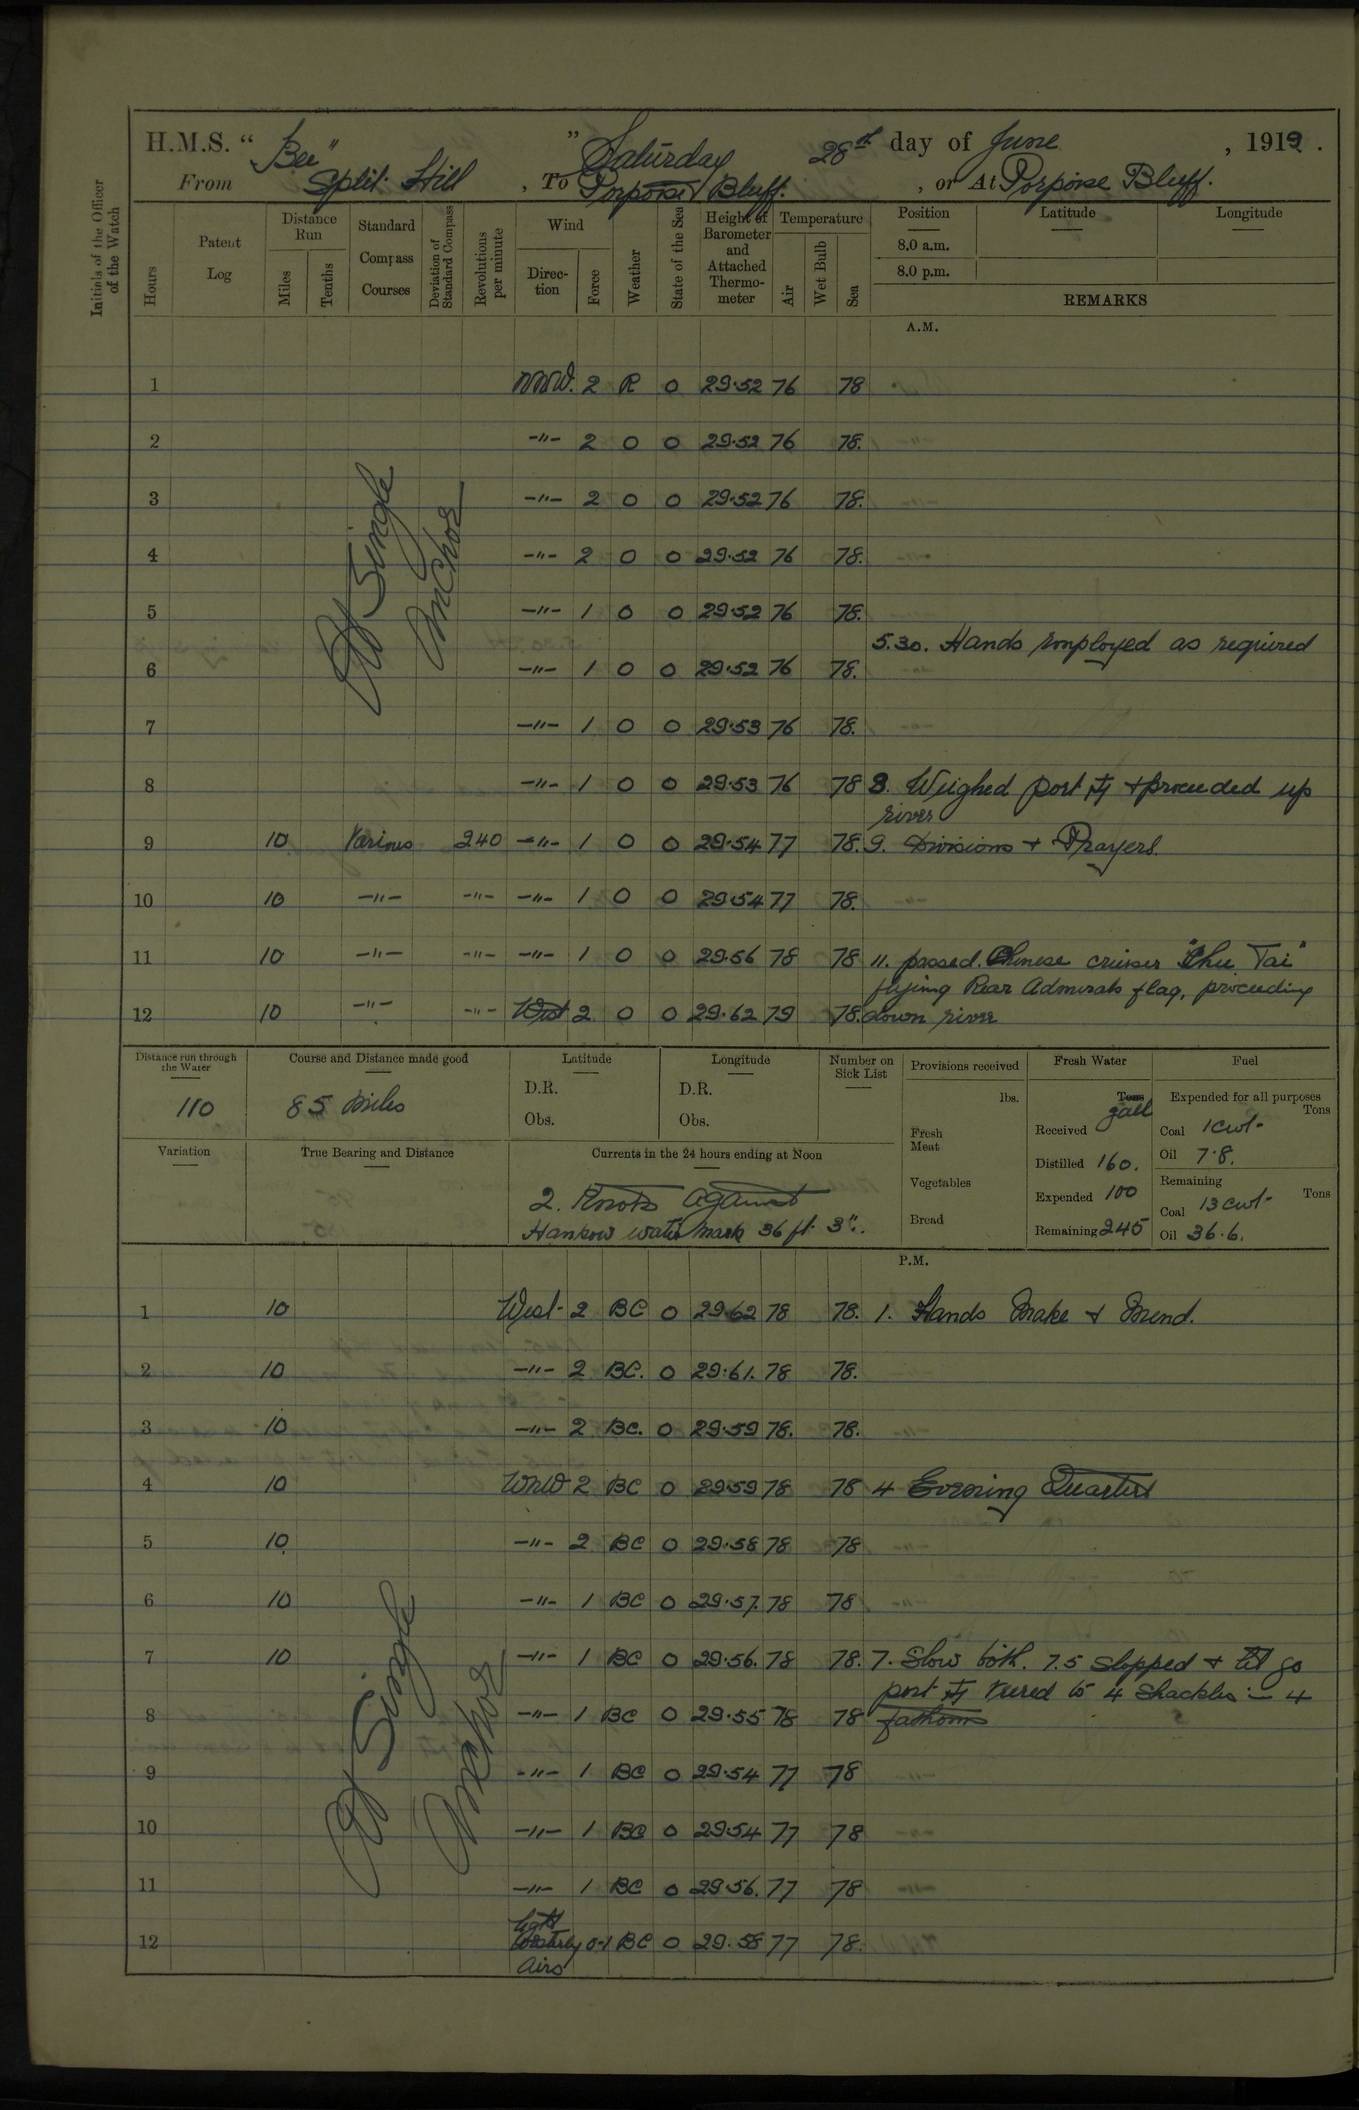 H.M.S. "Bee" Saturday 28th day of June, 1919.
From Split Hill, To Porpoise Bluff, or At Porpoise Bluff.
Initials of the Officer of the Watch
Hours Patent Log Distance Run Miles Tenths Standard Compass Courses Deviation of Standard Compass Revolutions per minute Wind Direction Force Weather State of the Sea Height of Barometer and Attached Thermometer Temperature Air Wet Bulb Sea Position Latitude Longitude
8.0 a.m.
8.0 p.m.
REMARKS
A.M.
1 NNW. 2 R 0 29.52 76 78
2 -"- 2 0 0 29.52 76 78.
3 -"- 2 0 0 29.52 76 78.
4 -"- 2 0 0 29.52 76 78.
At Single Anchor
5 -"- 1 0 0 29.52 76 78.
5.30. Hands employed as required
6 -"- 1 0 0 29.52 76 78.
7 -"- 1 0 0 29.53 76 78.
8 -"- 1 0 0 29.53 76 78 8. Weighed port ⚓ + proceeded up
river
9 10 Various 240 -"- 1 0 0 29.54 77 78. 9. Divisions + Prayers.
10 10 -"- -"- -"- 1 0 0 29.54 77 78.
11 10 -"- -"- -"- 1 0 0 29.56 78 78 11. passed. Chinese cruiser "Chu Tai"
flying Rear Admirals flag, proceeding
12 10 -"- -"- West 2 0 0 29.62 79 78. down river
Distance run through the Water Course and Distance made good Latitude Longitude Number on Sick List Provisions received Fresh Water Fuel
110 85 Miles
D.R. D.R.
Obs. Obs.
lbs. Tons gall Expended for all purposes Tons
Fresh Meat Received Coal 1 cwt-
Variation True Bearing and Distance Currents in the 24 hours ending at Noon
Distilled 160. Oil 7.8.
Vegetables Expended 100 Remaining Tons
2. Knots against
Coal 13 cwt-
Hankow water mark 36 ft. 3".
Bread Remaining 245 Oil 36.6.
P.M.
1 10 West- 2 BC 0 29.62 78 78. 1. Hands Make + Mend.
2 10 -"- 2 BC. 0 29.61. 78 78.
3 10 -"- 2 BC. 0 29.59 78. 78.
4 10 WNW 2 BC 0 29.59 78 78 4 Evening Quarters
5 10. -"- 2 BC 0 29.58 78 78
6 10 -"- 1 BC 0 29.57. 78 78
7 10 -"- 1 BC 0 29.56. 78 78. 7. Slow both. 7.5 Stopped + let go
port ⚓ veered to 4 Shackles :- 4
8 -"- 1 BC 0 29.55 78 78 fathoms
At Single Anchor
9 -"- 1 BC 0 29.54 77 78
10 -"- 1 BC 0 29.54 77 78
11 -"- 1 BC 0 29.56. 77 78
12 Light Westerly Airs 0-1 BC 0 29.58 77 78.